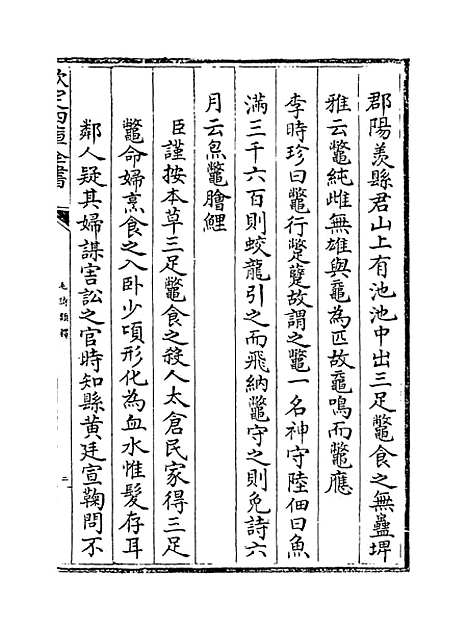 郡陽羨縣君山上有池池中出三足鼈食之無蠱埤
雅云鼈純雌無雄與黿為匹故黿鳴而鼈應
李時珍曰鼈行蹩躠故謂之鼈一名神守陸佃曰魚
滿三千六百則蛟龍引之而飛納鼈守之則免詩六
月云炰鼈膾鯉
臣謹按本草三足鼈食之殺人太倉民家得三足
鼈命婦烹食之入卧少頃形化為血水惟髮存耳
鄰人疑其婦謀害訟之官時知縣黄廷宣鞠問不
欽定四庫全書
毛詩類釋
二